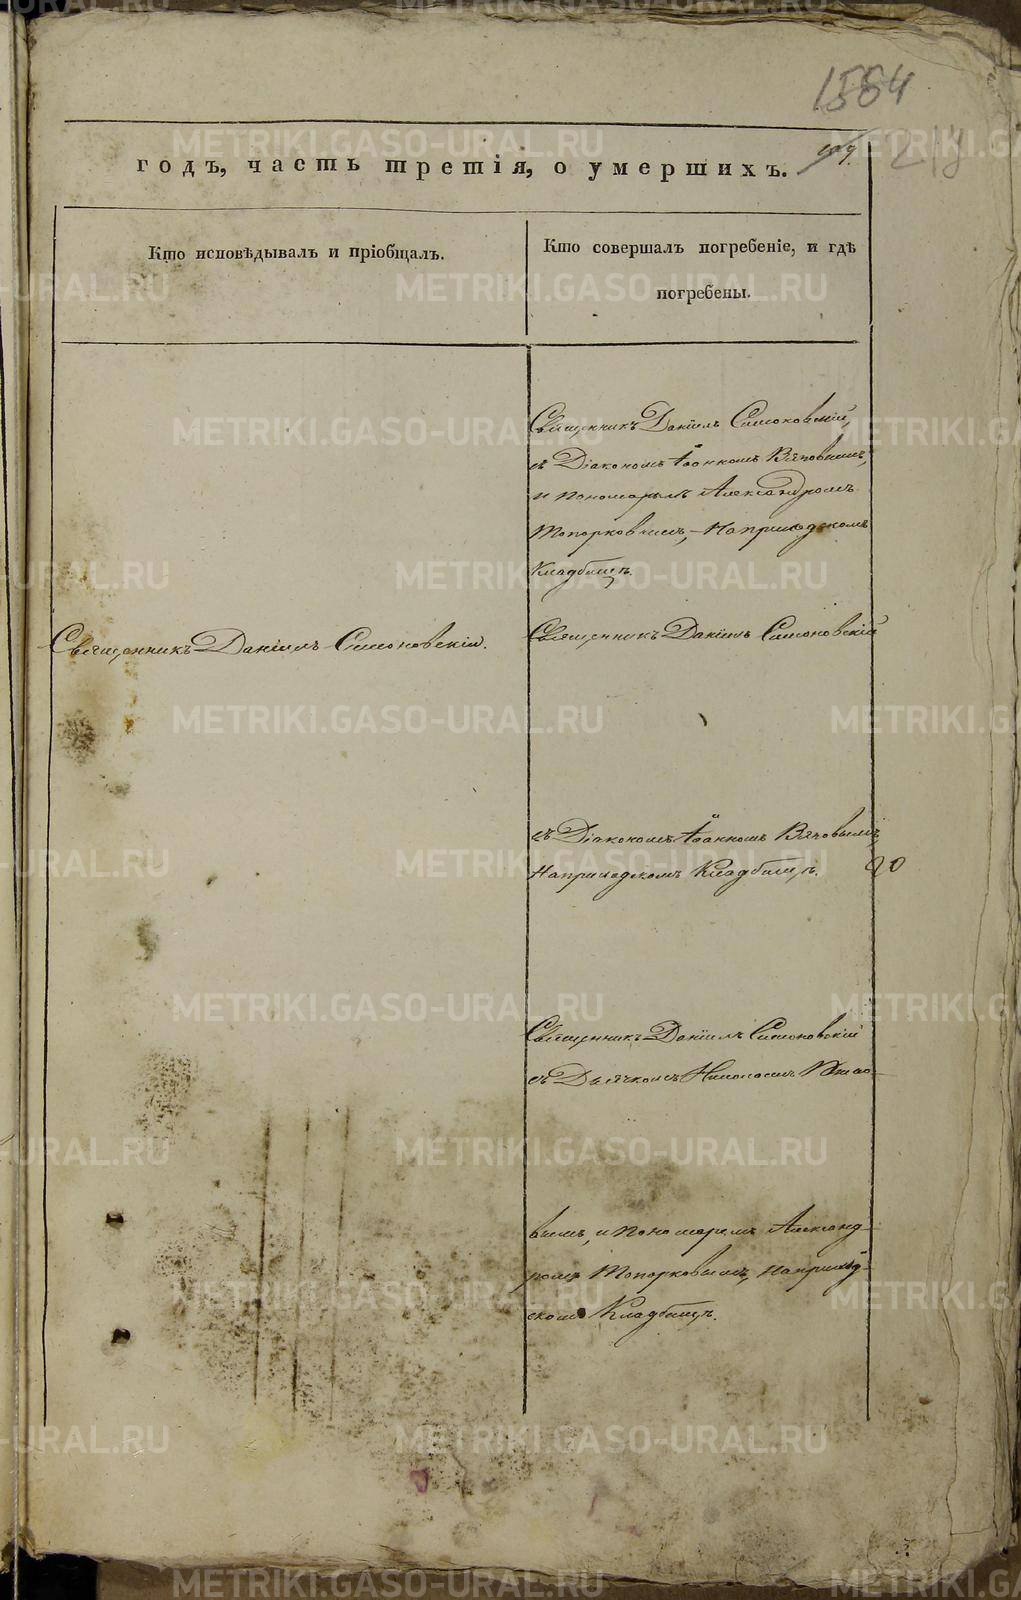 1564
годъ, часть третія, о умершихъ.
218
Кто исповѣдывалъ и пріобщалъ.
Кто совершалъ погребеніе, и гдѣ
погребены.
Священникъ Даніилъ Симоновскій,
съ Діакономъ Іоанномъ Вяловымъ,
и пономаремъ Александромъ
Топорковымъ, на приходскомъ
Кладбищѣ.
Священникъ Даніилъ Симоновскій.
Священникъ Даніилъ Симоновскій
съ Діакономъ Іоанномъ Вяловымъ,
На приходскомъ Кладбищѣ.
20
Священникъ Даніилъ Симоновскій
съ Дьячкомъ Николаемъ
вымъ, и пономаремъ Александ-
ромъ Топорковымъ, на приход-
скомъ Кладбищѣ.
METRIKI.GASO-URAL.RU